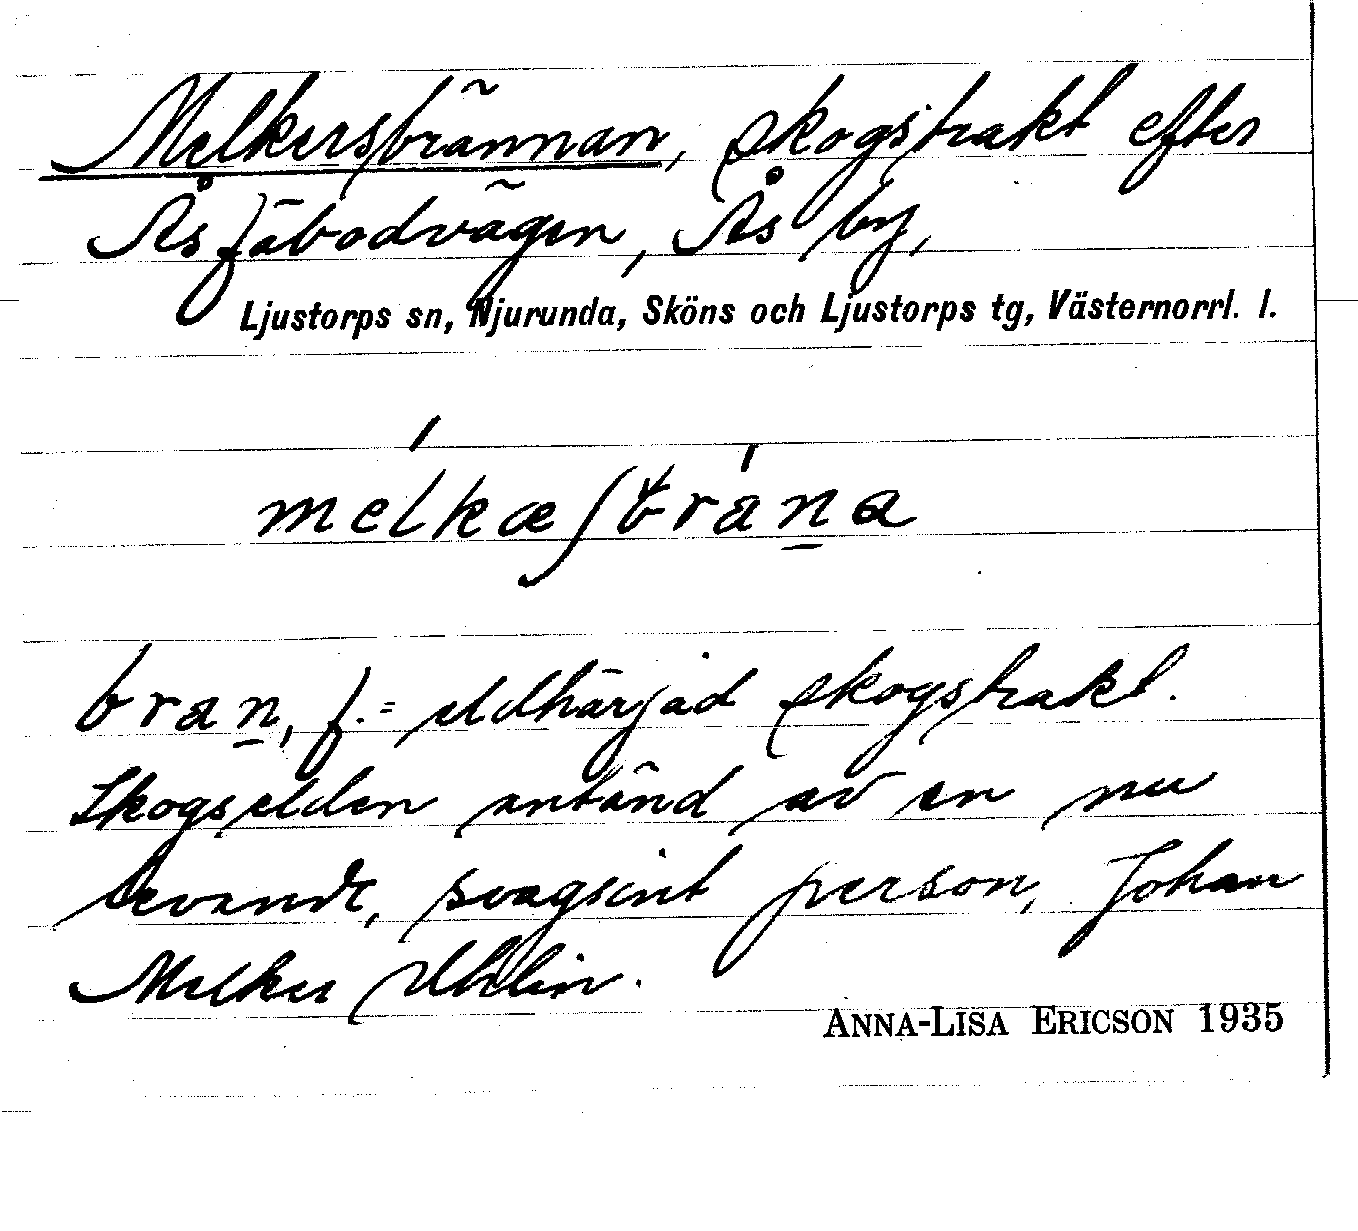 Melkersbrännan, skogstrakt efter
Ås fäbodvägen, Ås by,
Ljustorps sn, Njurunda, Sköns och Ljustorps tg, Västernorrl. l.
bran, f. = eldhärjad skogstrakt.
Skogselden antänd av en nu
levande, svagsint person, Johan
Melker Uhlin.
ANNA-LISA ERICSON 1935